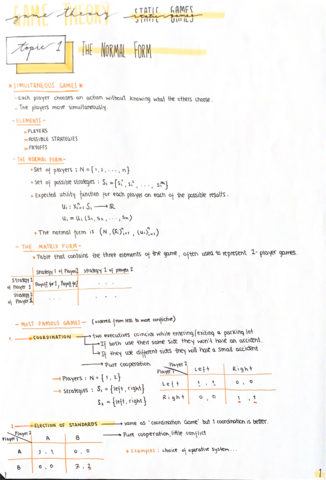 GAME THEORY
game theory
STATIC GAMES
topic 1
THE NORMAL FORM
* SIMULTANEOUS GAMES *
- Each player chooses an action without knowing what the others chose.
- The players move simultaneously.
- ELEMENTS -
PLAYERS
POSSIBLE STRATEGIES
PAYOFFS
- THE NORMAL FORM -
• Set of players: N = {1, 2, ..., n}
• Set of possible strategies:
• Expected utility function for each player on each of the possible results.
• The normal form is
- THE MATRIX FORM -
• Table that contains the three elements of the game, often used to represent 2-player games.
Strategy 1 of Player 2 Strategy 2 of player 2
Strategy 1 of Player 1 Payoff for 1, Payoff for 2 . . .
Strategy 2 of Player 1 . . . . . .
- MOST FAMOUS GAMES - (ordered from less to more conflictive)
1. COORDINATION → two executives coincide while entering/exiting a parking lot
→ If both use their same side they won't have an accident.
→ If they use different sides they will have a small accident.
→ Pure cooperation
→ Players: N = {1, 2}
→ Strategies: S₁ = {left, right}
S₂ = {left, right}
Player 2
Player 1 Left Right
Left 1, 1 0, 0
Right 0, 0 1, 1
2. ELECTION OF STANDARDS → same as "coordination Game" but 1 coordination is better.
→ Pure cooperation, little conflict
* Examples: choice of operative system...
Player 2
Player 1 A B
A 0, 0
B 0, 0
1